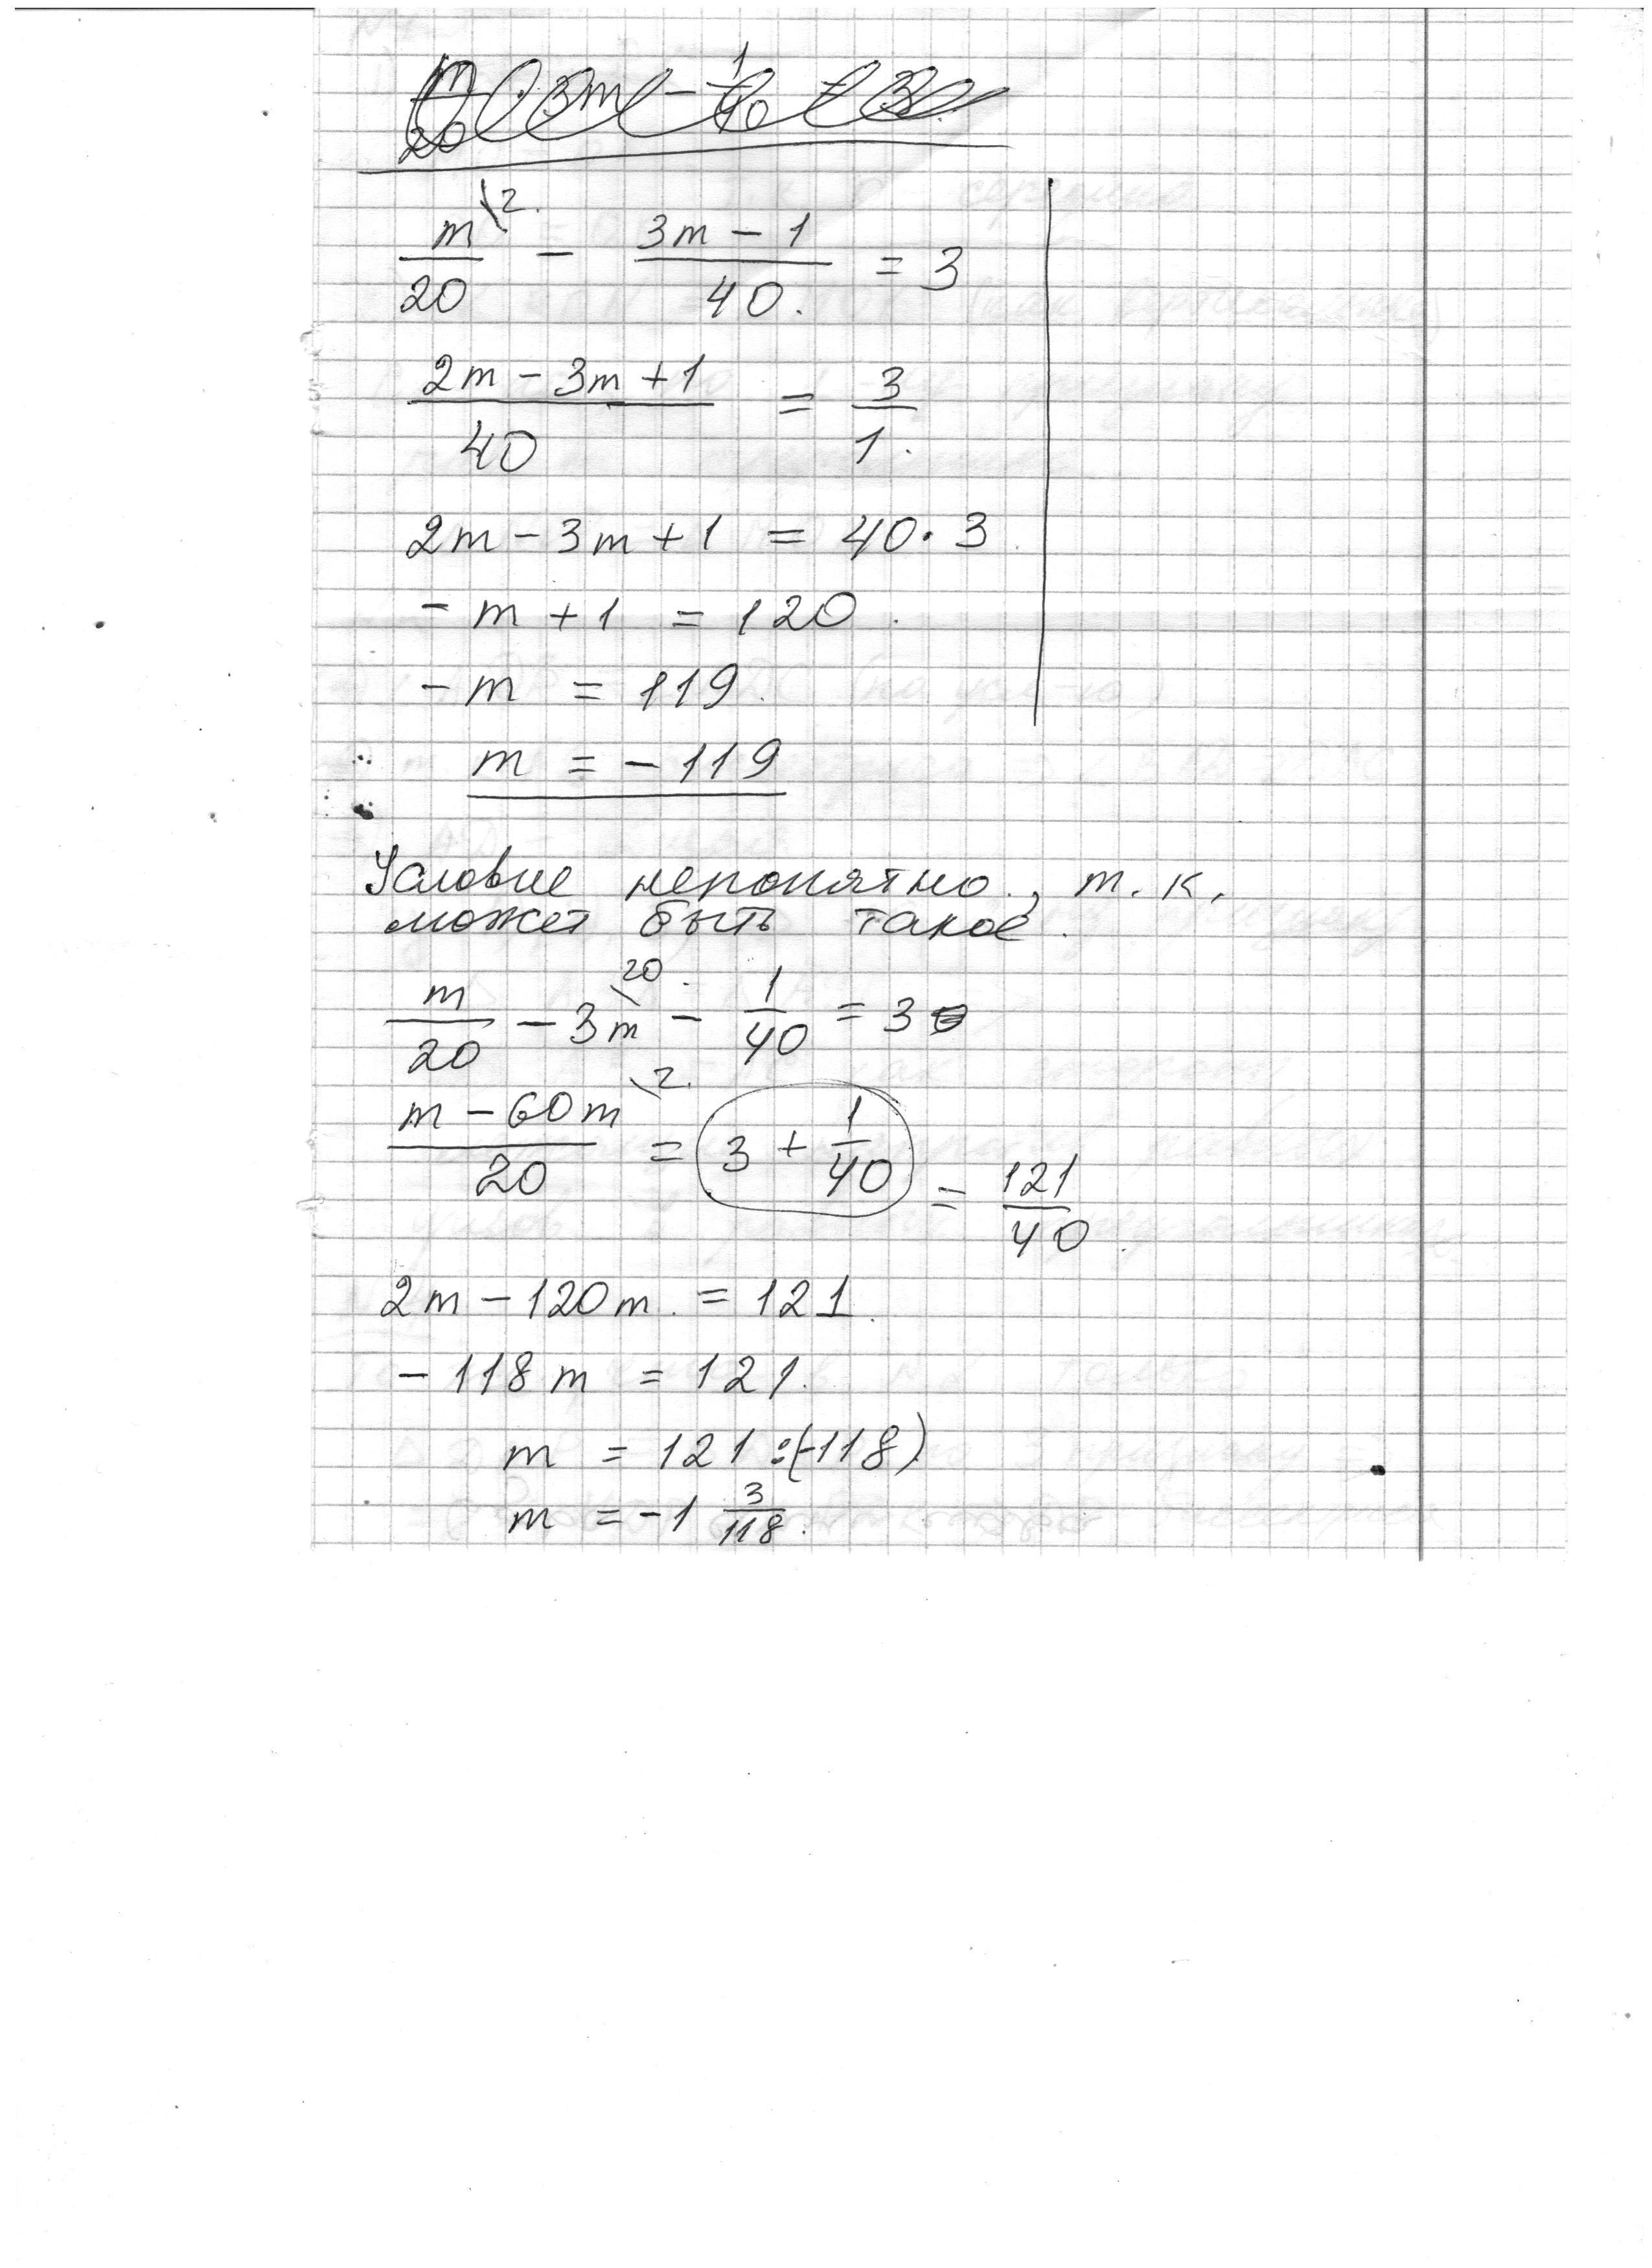 m/20 \2. - (3m - 1)/40. = 3
(2m - 3m + 1)/40 = 3/1.
2m - 3m + 1 = 40 · 3
- m + 1 = 120.
- m = 119.
m = - 119
Условие непонятно, т. к.
может быть такое.
m/20 - 3m \20. - 1/40 = 3
(m - 60m)/20 \2. = 3 + 1/40 = 121/40.
2m - 120m = 121.
- 118m = 121.
m = 121 :(-118)
m = -1 3/118.